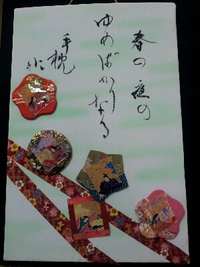 春の夜の
ゆめばかりなる
手枕に